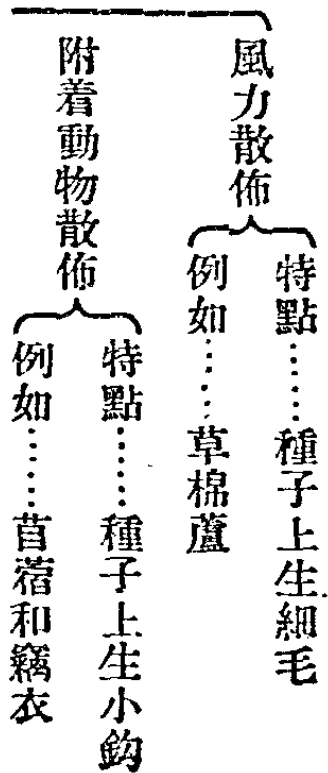 風力散佈
特點……種子上生細毛
例如……草棉蘆
附着動物散佈
特點……種子上生小鈎
例如……苜蓿和竊衣